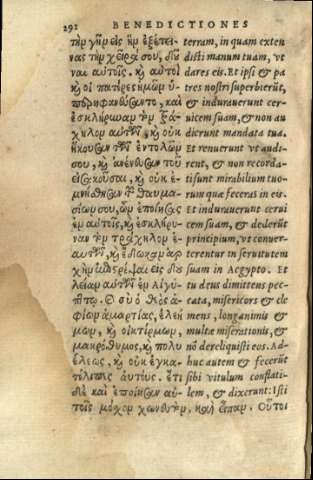 292 BENEDICTIONES
τὴν γῆν εἰς ἣν ἐξέτει-
νας τὴν χεῖρά σου, δοῦ
ναι αὐτοῖς. καὶ αὐτοὶ
καὶ οἱ πατέρες ἡμῶν ὑ-
περηφανεύσαντο, καὶ
ἐσκλήρωσαν τὸν τρά-
χηλον αὐτῶν, καὶ οὐκ
ἤκουσαν τῶν ἐντολῶν
σου, καὶ ἀνένευσαν τοῦ
εἰσακοῦσαι, καὶ οὐκ ἐ-
μνήσθησαν τῶν θαυμα-
σίων σου, ὧν ἐποίησας
ἐν αὐτοῖς, καὶ ἐσκλήρυ-
ναν τὸν τράχηλον ἑ-
αυτῶν, καὶ ἔδωκαν ἀρ
χὴν ἐπιστρέψαι εἰς δου
λείαν αὐτῶν ἐν Αἰγύ-
πτῳ. Ὁ σὺ ὁ θεὸς ἀ-
φίων ἁμαρτίας, ἐλεή
μων, καὶ οἰκτίρμων,
μακρόθυμος, καὶ πολυ
έλεως, καὶ οὐκ ἐγκα-
τέλιπες αὐτούς. ἔτι
δὲ καὶ ἐποίησαν αὑ-
terram, in quam exten
disti manum tuam, vt
dares eis. Et ipsi & pa
tres nostri superbierūt,
& indurauerunt cer-
uicem suam, & non au
dierunt mandata tua.
Et renuerunt vt audi-
rent, & non recorda-
ti sunt mirabilium tuo-
rum quæ feceras in eis.
Et indurauerunt cerui
cem suam, & dederūt
principium, vt conuer-
terentur in seruitutem
suam in Aegypto. Et
tu deus dimittens pec-
cata, misericors & cle
mens, longanimis &
multæ miserationis, &
nō dereliquisti eos. Ad-
huc autem & fecerūt
sibi vitulum conflati-
lem, & dixerunt: Isti
τοῖς μόσχον χωνευτὸν, καὶ εἶπαν. Οὗτοι